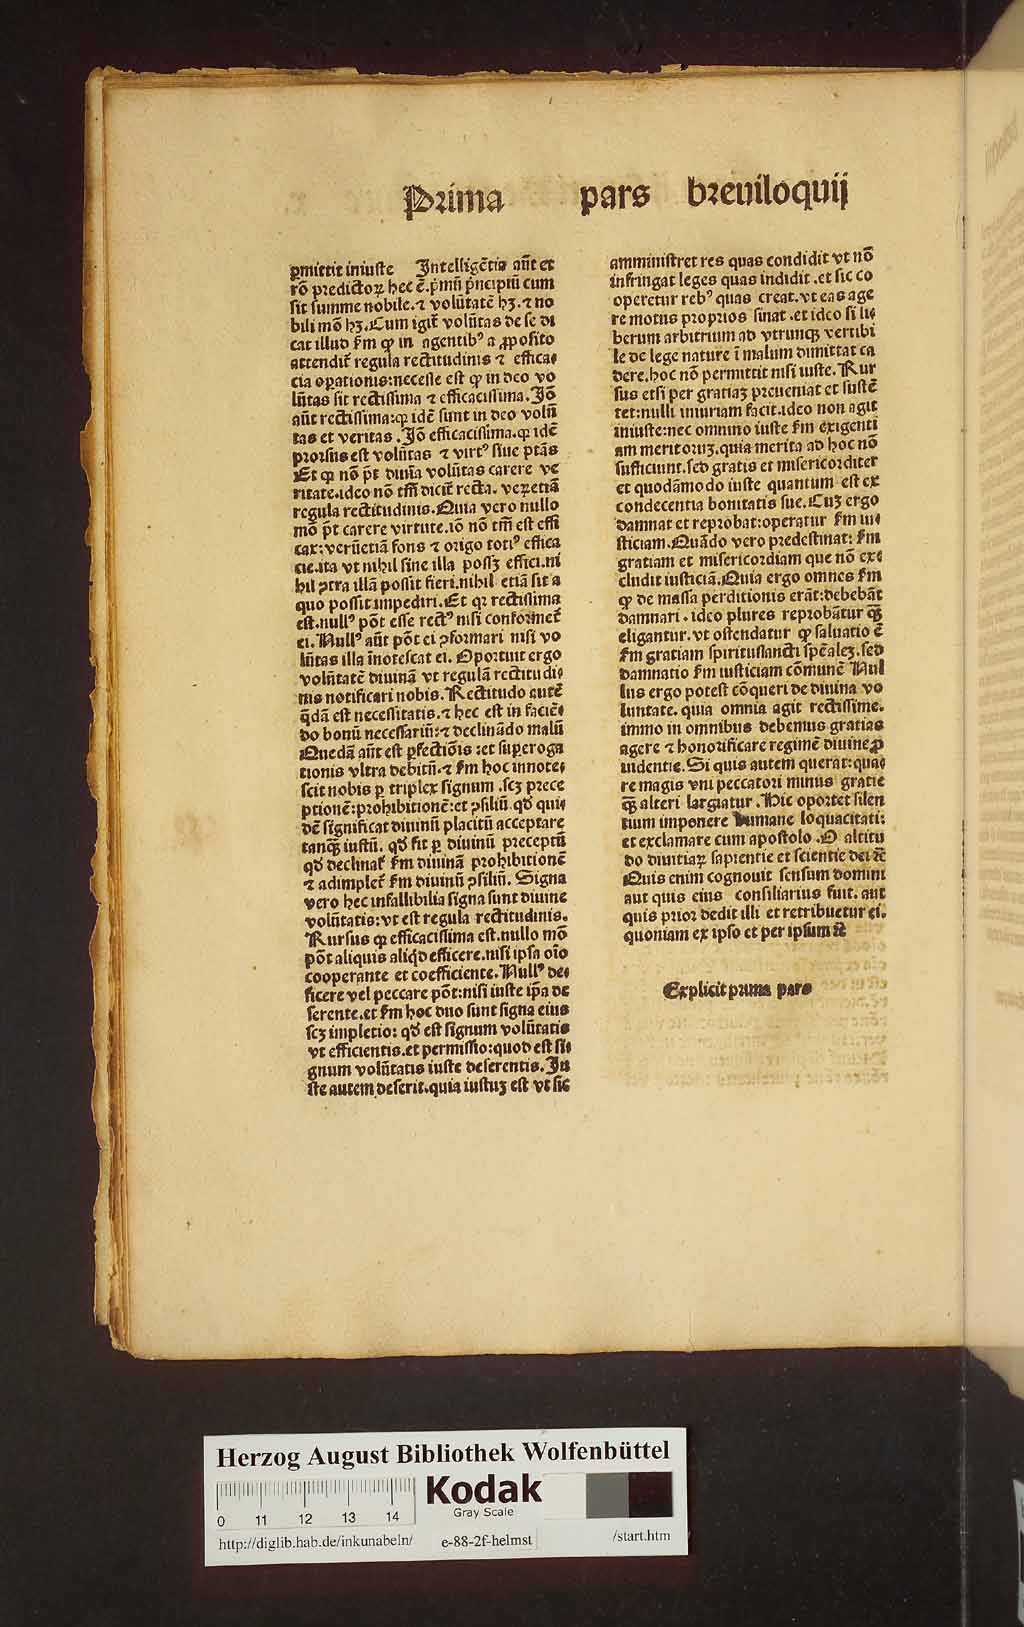 Prima pars breuiloquij
ꝑmittit iniuste Intelligẽtia aũt et
rõ predictoꝝ hec ẽ. p̃mũ p̃ncipiũ cum
sit summe nobile. ⁊ volũtatẽ hꝫ. ⁊ no
bili mõ hꝫ. Cum igit̃ volũtas de se di
cat illud ẜm ꝙ in agentibꝰ a ꝓposito
attendit̃ regula rectitudinis ⁊ effica⸗
cia oꝑationis: necesse est ꝙ in deo vo
lũtas sit rectissima ⁊ efficacissima. Iõ
aũt rectissima: qꝛ idẽ sunt in deo volũ
tas et veritas. Iõ efficacissima. qꝛ idẽ
prorsus est volũtas ⁊ virtꝰ siue ptãs
Et qꝛ nõ p̃t diuĩa volũtas carere ve
ritate. ideo nõ tm̃ dicit̃ recta. veꝝetiã
regula rectitudinis. Quia vero nullo
mõ p̃t carere virtute. iõ nõ tm̃ est effi
cax: verũetiã fons ⁊ origo totiꝰ effica
cie. ita vt nihil sine illa possꝫ effici. ni
hil ꝯtra illã possit fieri. nihil etiã sit a
quo possit impediri. Et qꝛ rectissima
est. nullꝰ põt esse rectꝰ nisi conformet̃
ei. Nullꝰ aũt põt ei ꝯformari nisi vo
lũtas illa ĩnotescat ei. Oportuit ergo
volũtatẽ diuinã vt regulã rectitudi⸗
nis notificari nobis. Rectitudo autẽ
q̃dã est necessitatis. ⁊ hec est in faciẽ⸗
do bonũ necessariũ: ⁊ declinãdo malũ
Quedã aũt est ꝑfectiõis: et superoga
tionis vltra debitũ. ⁊ ẜm hoc innote⸗
scit nobis ꝑ triplex signum. scꝫ prece
ptionẽ: prohibitionẽ: et ꝯsiliũ. qd̃ qui⸗
dẽ significat diuinũ placitũ acceptare
tanqꝫ iustũ. qd̃ fit ꝑ diuinũ preceptũ
qd̃ declinat̃ ẜm diuinã prohibitionẽ
⁊ adimplet̃ ẜm diuinũ ꝯsiliũ. Signa
vero hec infallibilia signa sunt diuine
volũtatis: vt est regula rectitudinis.
Rursus qꝛ efficacissima est. nullo mõ
põt aliquis aliqd̃ efficere. nisi ipsa oĩo
cooperante et coefficiente. Nullꝰ de⸗
ficere vel peccare põt: nisi iuste ip̃a de
serente. et ẜm hoc duo sunt signa eius
scꝫ impletio: qd̃ est signum volũtatis
vt efficientis. et permissio: quod est si⸗
gnum volũtatis iuste deserentis. Iu
ste autem deserit. quia iustuꝫ est vt sic
amministret res quas condidit vt nõ
infringat leges quas indidit. et sic co
operetur rebꝰ quas creat. vt eas age
re motus proprios sinat. et ideo si li⸗
berum arbitrium ad vtrunqꝫ vertibi
le de lege nature ĩ malum dimittat ca
dere. hoc nõ permittit nisi iuste. Rur
sus etsi per gratiaꝫ preueniat et sustẽ
tet: nulli iniuriam facit. ideo non agit
iniuste: nec omnino iuste ẜm exigenti
am meritoruꝫ. quia merita ad hoc nõ
sufficiunt. sed gratis et misericorditer
et quodãmodo iuste quantum est ex
condecentia bonitatis sue. Cuꝫ ergo
damnat et reprobat: operatur ẜm iu⸗
sticiam. Quãdo vero predestinat: ẜm
gratiam et misericordiam que nõ exc⸗
cludit iusticiã. Quia ergo omnes ẜm
ꝙ de massa perditionis erãt: debebãt
damnari. ideo plures reprobãtur qꝫ̃
eligantur. vt ostendatur ꝙ saluatio ẽ
ẜm gratiam spiritussancti spẽaleꝫ. sed
damnatio ẜm iusticiam cõmunẽ Nul
lus ergo potest cõqueri de diuina vo
luntate. quia omnia agit rectissime.
immo in omnibus debemus gratias
agere ⁊ honorificare regimẽ diuine ꝓ
uidentie. Si quis autem querat: qua⸗
re magis vni peccatori minus gratie
qꝫ̃ alteri largiatur. Hic oportet silen
tium imponere humane loquacitati:
et exclamare cum apostolo. O altitu
do diuitiaꝝ sapientie et scientie dei ⁊c̃
Quis enim cognouit sensum domini
aut quis eius consiliarius fuit. aut
quis prior dedit illi et retribuetur ei.
quoniam ex ipso et per ipsum ⁊c̃
Explicit prima pars
Herzog August Bibliothek Wolfenbüttel
Kodak
Gray Scale
0 11 12 13 14
http://diglib.hab.de/inkunabeln/ e-88-2f-helmst /start.htm